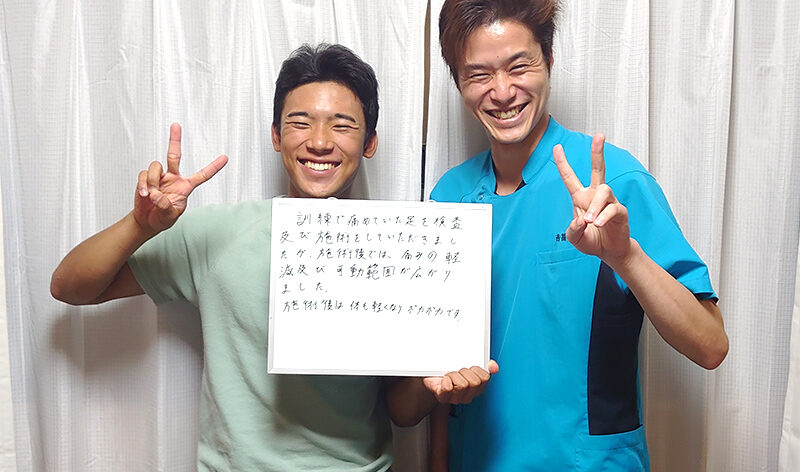 訓練で痛めていた足を検査
及び施術をしていただきまし
たが、施術後では、痛みの軽
減及び可動範囲が広がり
ました。
施術後は体も軽くなりポカポカです。